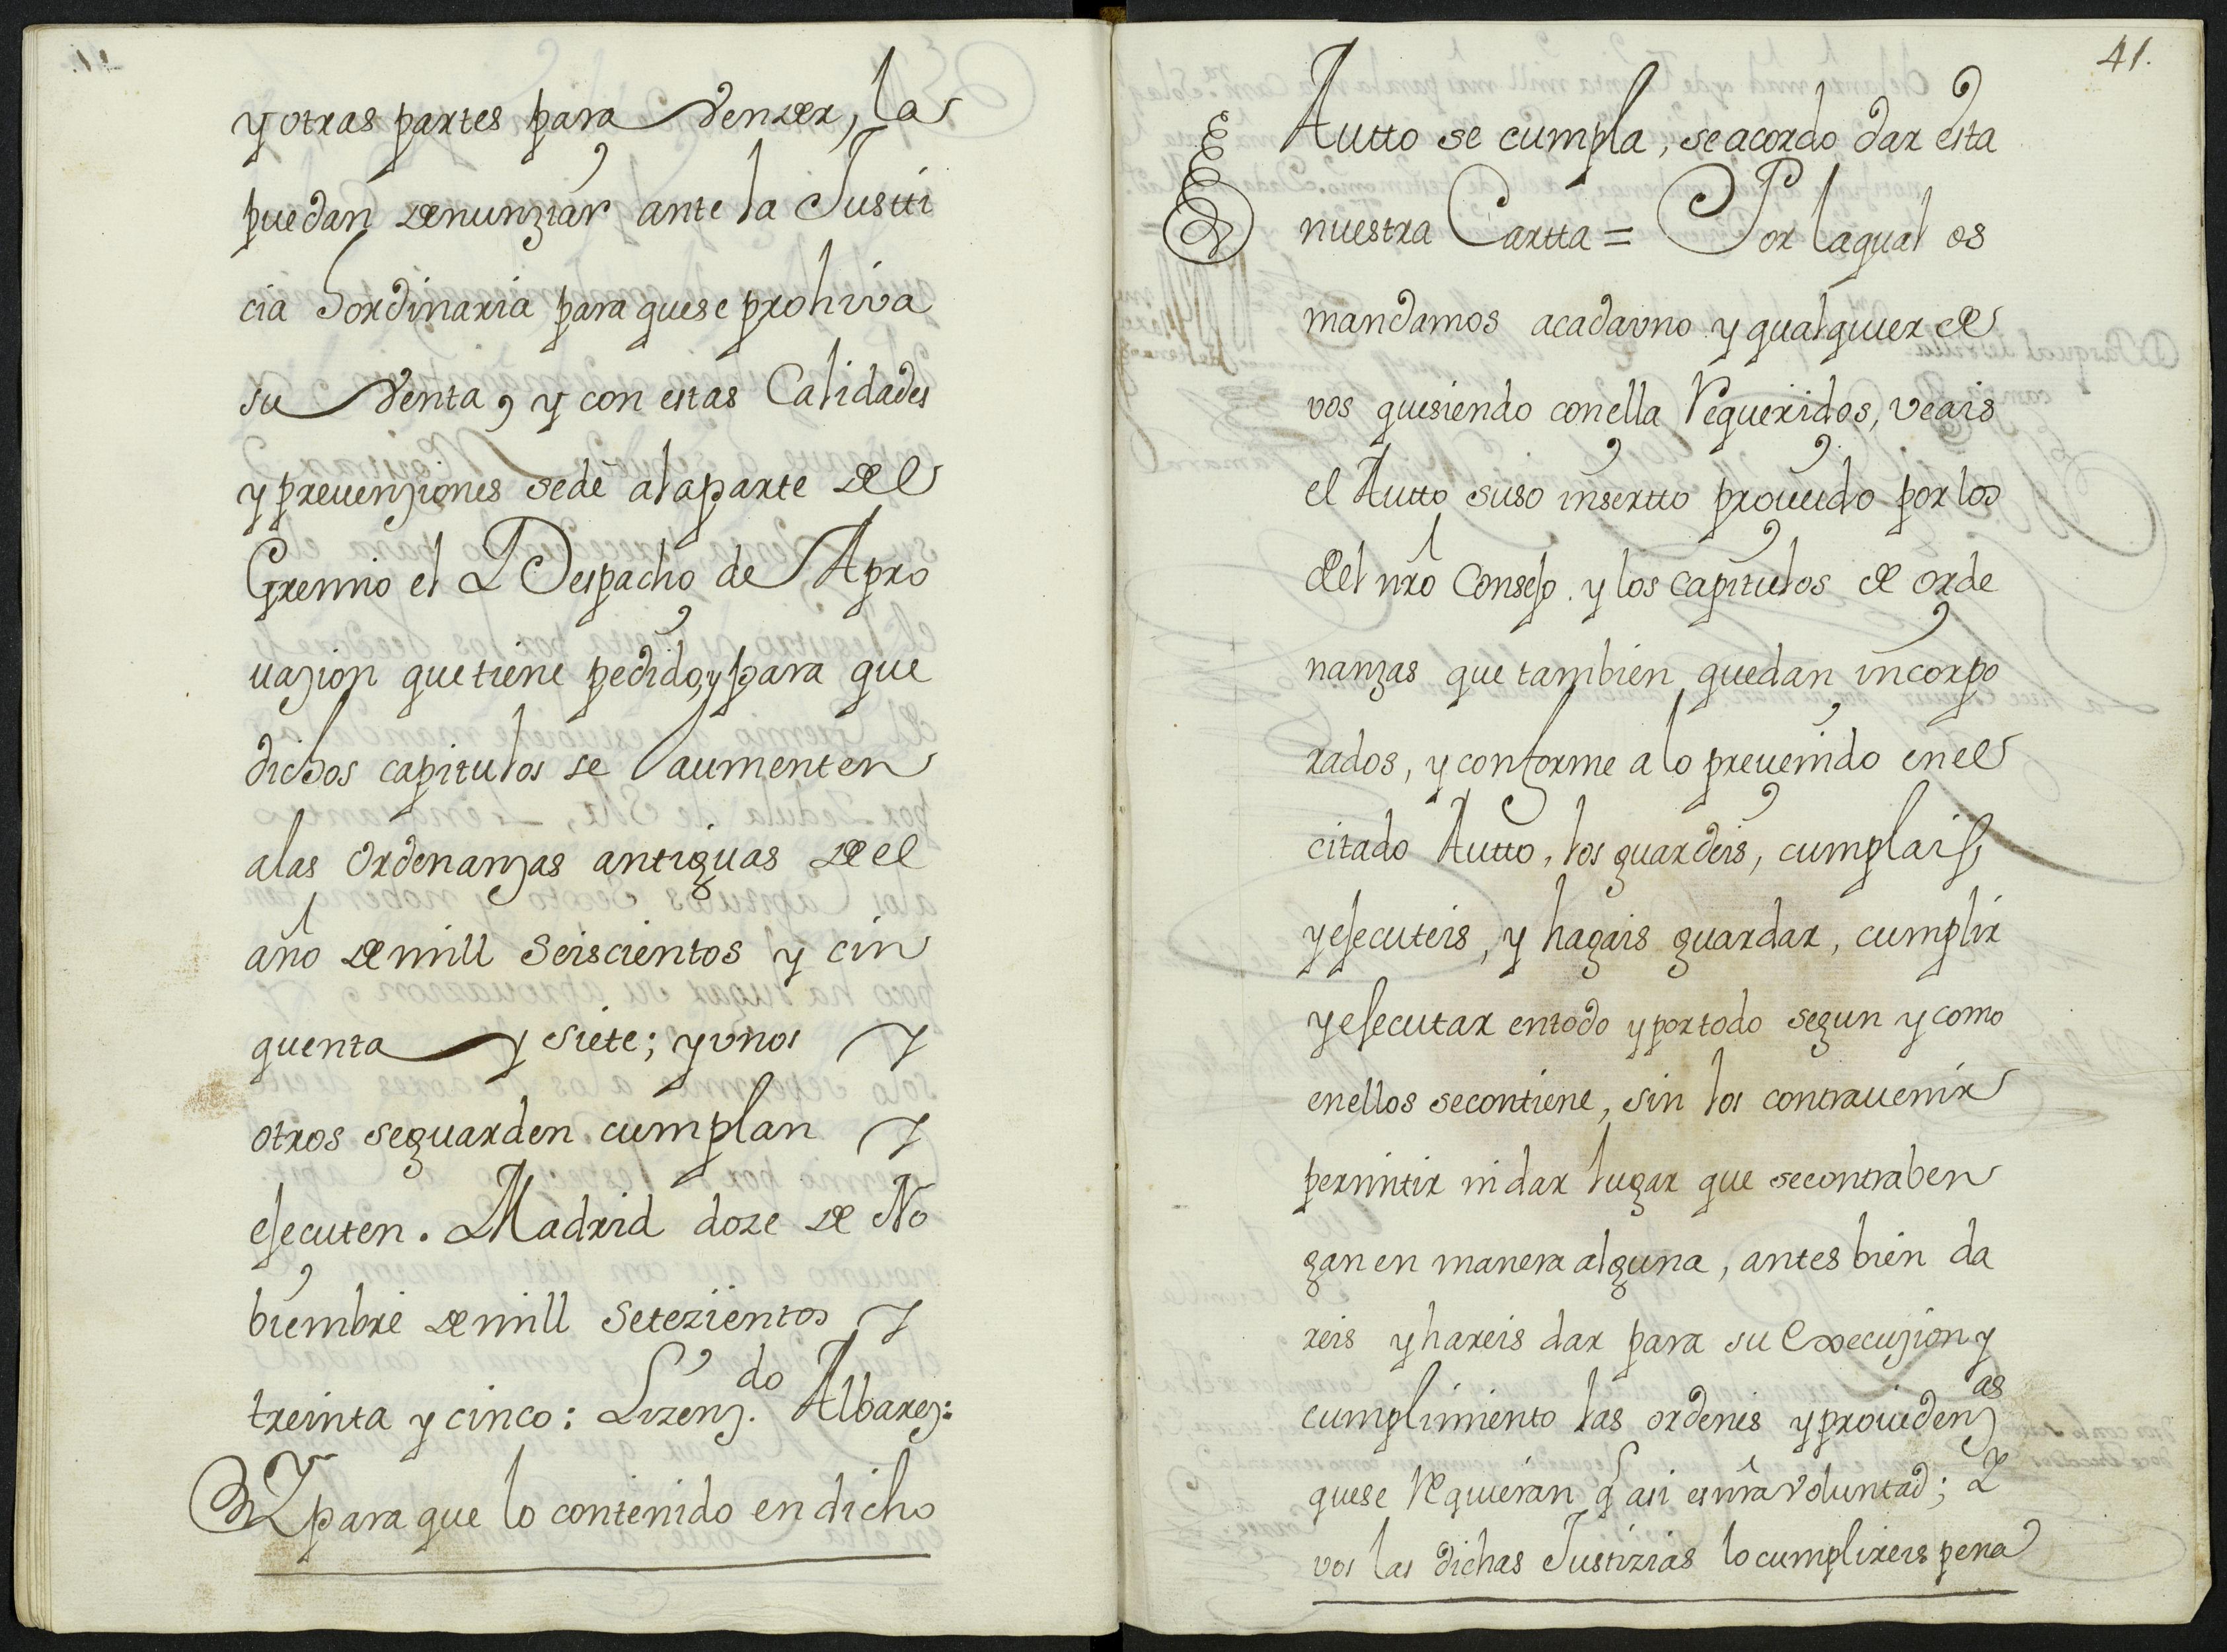 y otras partes para Venzer, las
puedan denunziar ante la Justi
cia hordinaria para que se prohiva
su Venta, y con estas Calidades
y prevenziones se dé a la parte del
Gremio el Despacho de Apro
uazion que tiene pedido, y para que
dichos capitulos se aumenten
a las Ordenanzas antiguas de el
año de mill Seiscientos y cin
quenta y siete; y vnos y
otros se guarden cumplan y
esecuten. Madrid doze de No
biembre de mill Setezientos y
treinta y cinco: Lizenz.do Albarez:
Y para que lo contenido en dicho
41.
Autto se cumpla, se acordo dar esta
nuestra Cartta = Por la qual os
mandamos a cada vno y qualquier de
vos que siendo con ella Requeridos, veais
el Autto suso insertto proueido por los
del nr̃o Consejo y los capitulos de orde
nanzas que tambien quedan incorpo
rados, y conforme a lo preuenido en el
citado Autto, los guardeis, cumplais,
y esecuteis, y hagais guardar, cumplir
y esecutar en todo y por todo segun y como
en ellos se contiene, sin los contrauenir
permitir ni dar lugar que se contraben
gan en manera alguna, antes bien da
reis y hareis dar para su Execuzion y
cumplimiento las ordenes y prouidenz.as
que se Requieran q̃ asi es nr̃a Voluntad; Y
vos las dichas Justizias lo cumplireis pena